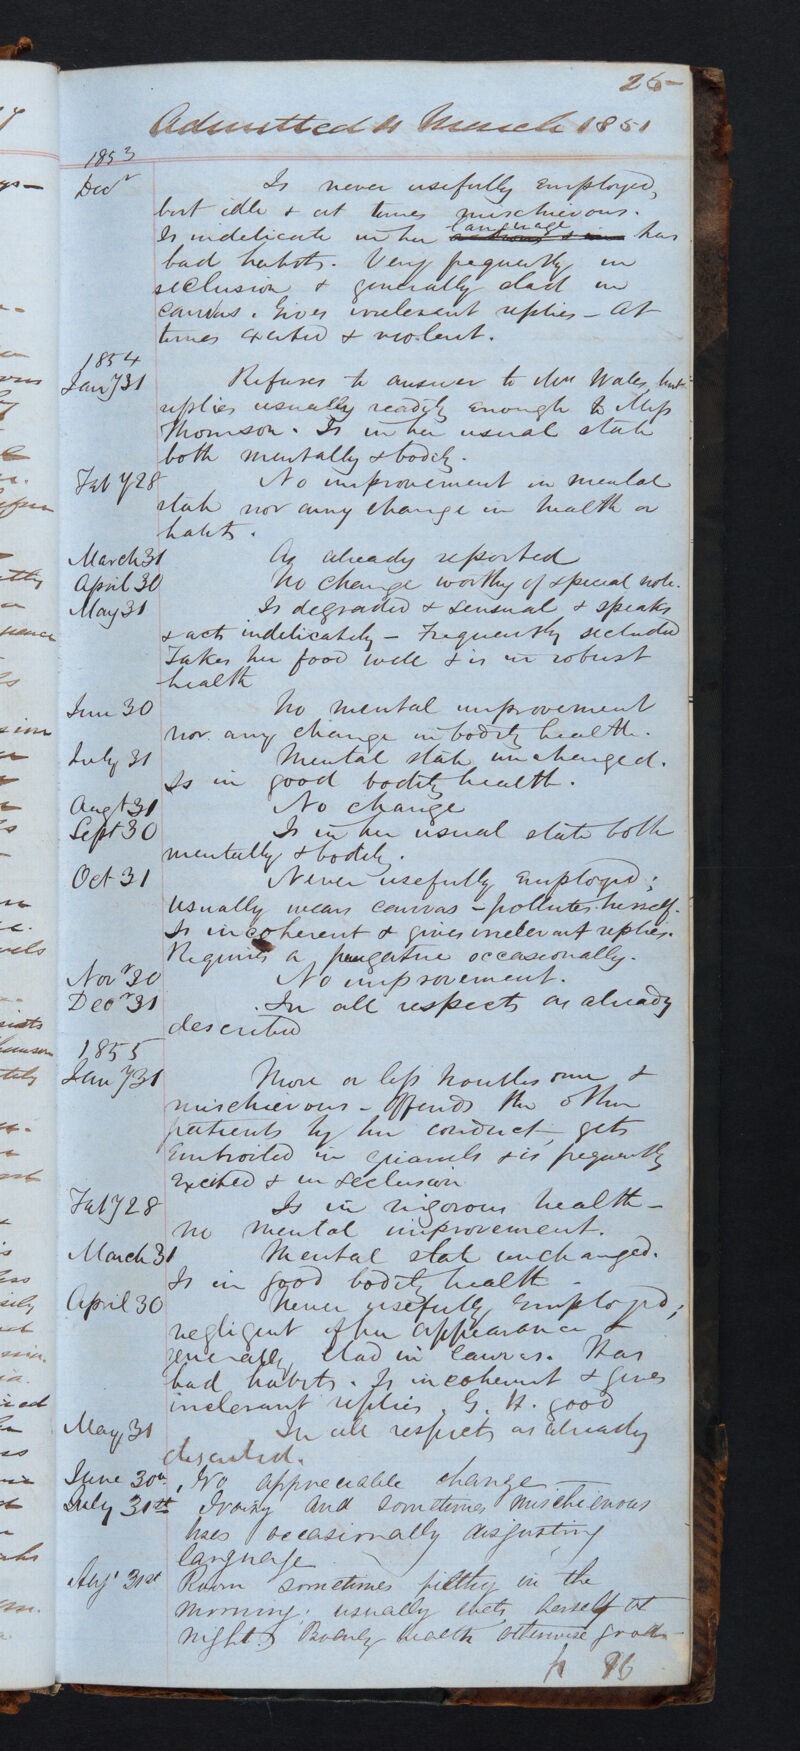 25
Admitted 11 March 1851
1853
Decr Is never usefully employed,
but idle & at times mischievous.
Is indelicate in her language has
bad habits. Very frequently in
seclusion & generally clad in
canvas. Gives irrelevant replies - At
times excited & violent.
1854
Jany 31 Refuses to answer to Mr Wales, but
replies usually readily enough to Miss
Thomson. Is in her usual state
both mentally & bodily.
Feby 28 No improvement in mental
state nor any change in health or
habits.
March 31 As already reported
April 30 No change worthy of special note.
May 31 Is degraded & sensual & speaks
& acts indelicately - Frequently secluded
Takes her food well & is in robust
health
June 30 No mental improvement
nor any change in bodily health.
July 31 Mental state unchanged.
Is in good bodily health.
Augt 31 No change
Sept 30 Is in her usual state both
mentally & bodily.
Oct 31 Never usefully employed;
usually wears canvas - pollutes herself.
Is incoherent & gives irrelevant replies.
Requires a purgative occasionally.
Novr 30 No improvement.
Decr 31 In all respects as already
described
1855
Jany 31 More or less troublesome &
mischievous - offends the other
patients by her conduct, gets
embroiled in quarrels & is frequently
excited & in seclusion
Feby 28 Is in vigorous health -
no mental improvement.
March 31 Mental state unchanged.
Is in good bodily health -
April 30 Never usefully employed;
negligent of her appearance &
generally clad in canvas. Has
bad habits. Is incoherent & gives
irrelevant replies. G. H. good
May 31 In all respects as already
described.
June 30th, No appreciable change
July 31st and sometimes mischievous
uses occasionally disgusting
language
Augt 31st Room sometimes filthy in the
morning; usually wets herself at
night. Bodily health otherwise good
p 96